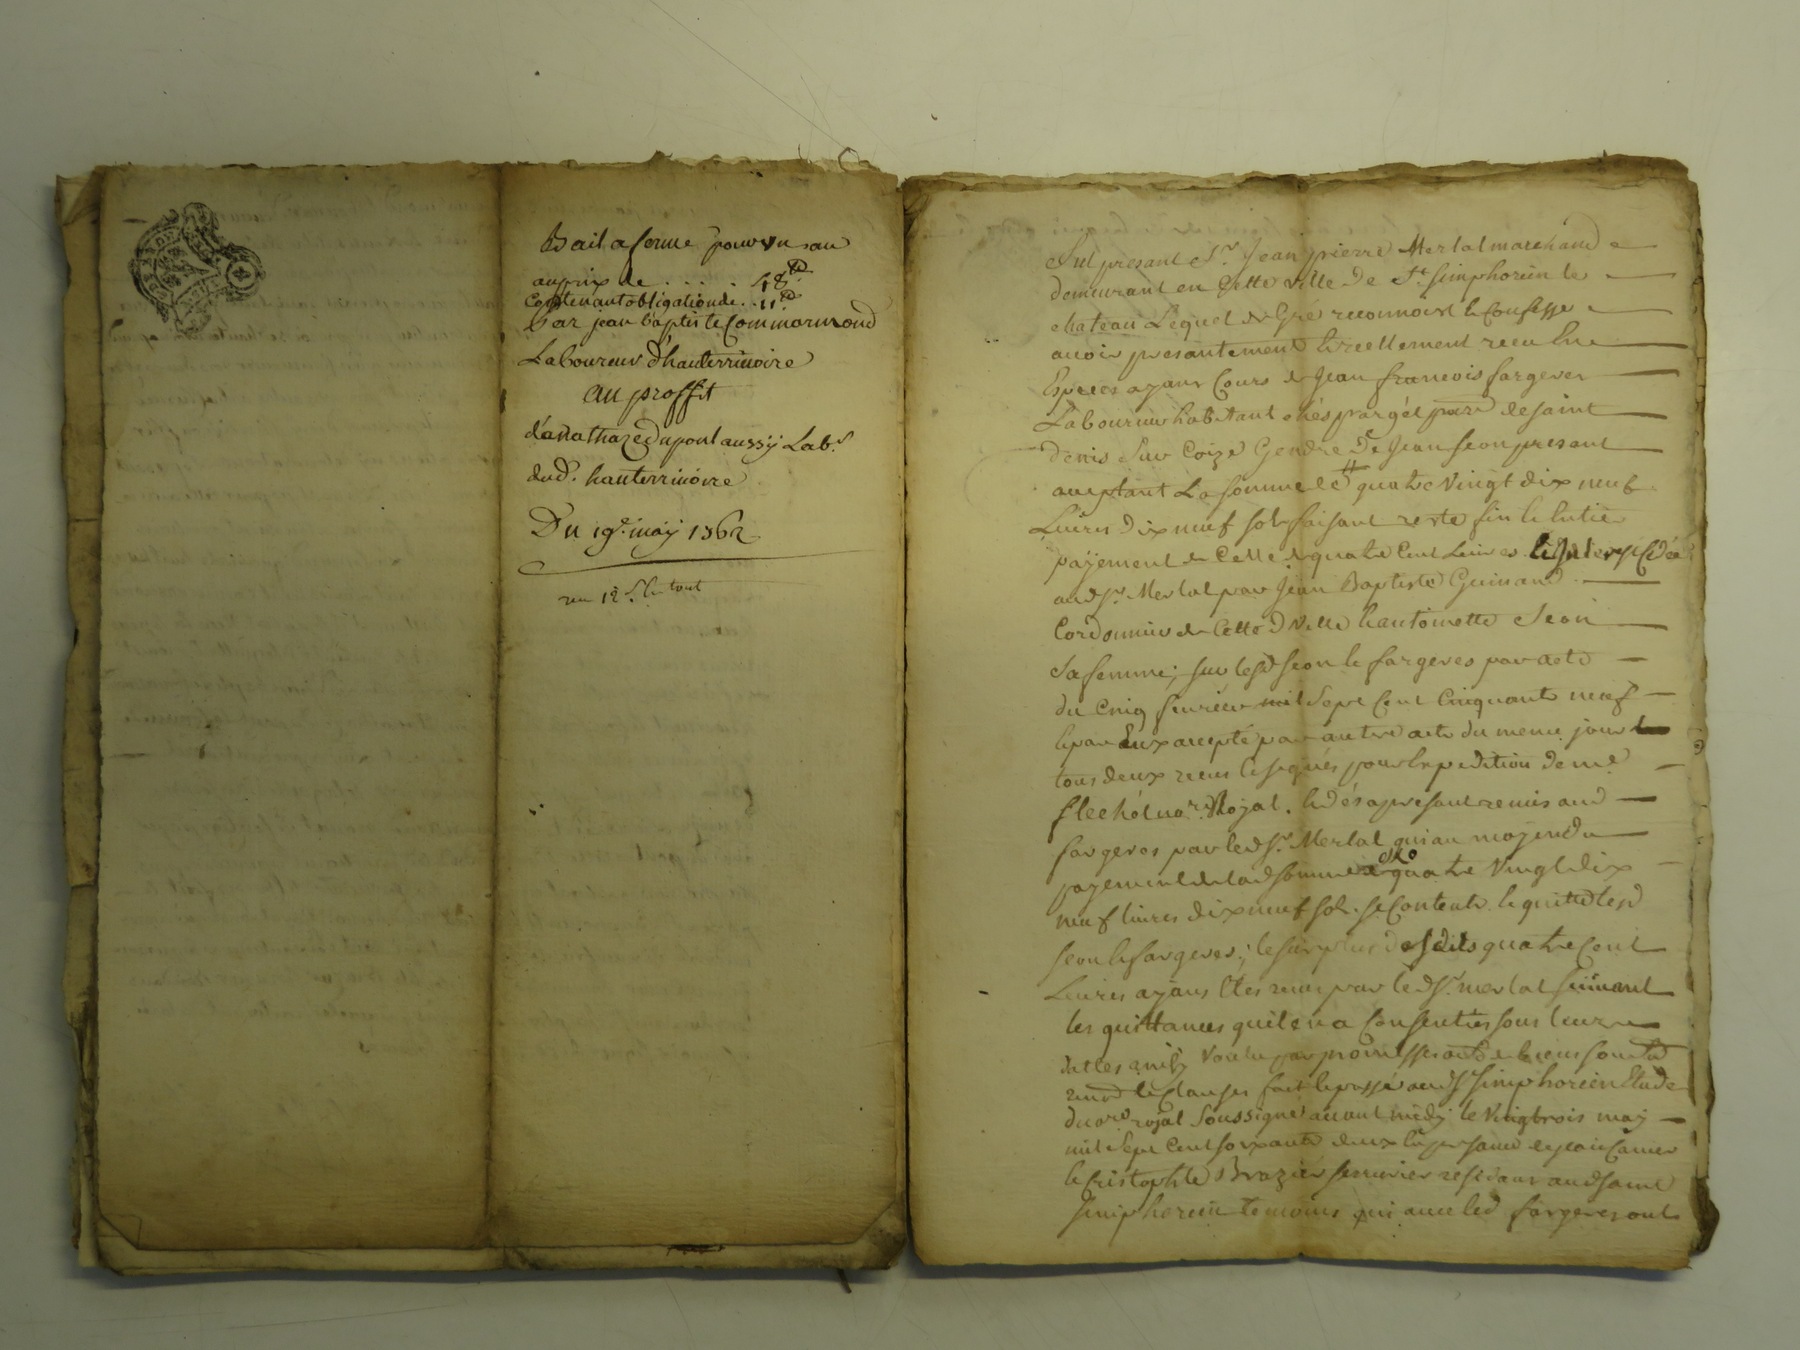 Bail a ferme pour un an
au prix de . . . . . 18#
Contenant obligation de . . 11#
Par jean baptiste Commarmond
Laboureur d'hauterrivoire
au proffit
d'anathaze dupont aussy Lab.r
dud. hauterrivoire
Du 19e. may 1762
12 s. tout
Fut presant Sr. Jean pierre Merlat marchand
demeurant en Cette ville de St. simphorien le
chateau Lequel de Gré reconnoist & Confesse
avoir presantement & reellement receu En
Especes ayant Cours de Jean francois fargeres
Laboureur habitant parr. de saint
denis Sur Coize Gendre de Jean seon presant
acceptant La somme de quatre Vingt dix neuf
Livres dix neuf sols faisant reste fin & Entier
payement de Celle de quatre Cent Livres
aud Sr. Merlat par Jean Baptiste Guinand
Cordonnier de Cette d Ville & antoinette Seon
sa femme, sur lesd seon & fargeres par acte
du Cinq fevrier mil sept Cent Cinquante neuf
& par Eux accepté par autre acte du meme jour
tous deux receus & signés pour Expedition de me
flechét no.re Royal. & dés apresant remis aud
fargeres par led Sr. Merlat qui au moyen du
payement de lad somme de quatre Vingt dix
neuf livres dix neuf sols. se Contente & quitte lesd
seon & fargeres; le surplus desdits quatre Cent
Livres ayant Etés receu par led Sr. merlat suivant
les quittances quil en a Consenties sous leurs
dattes par promesses
renon & Clauses fait & passé aud St simphorien Etude
du nore royal Soussigné avant midy le Vingtrois may
mil sept Cent soixante deux En presance de jean
& Cristophle Brazier serrurier residants aud saint
simphorien temoins qui avec led fargeres ont